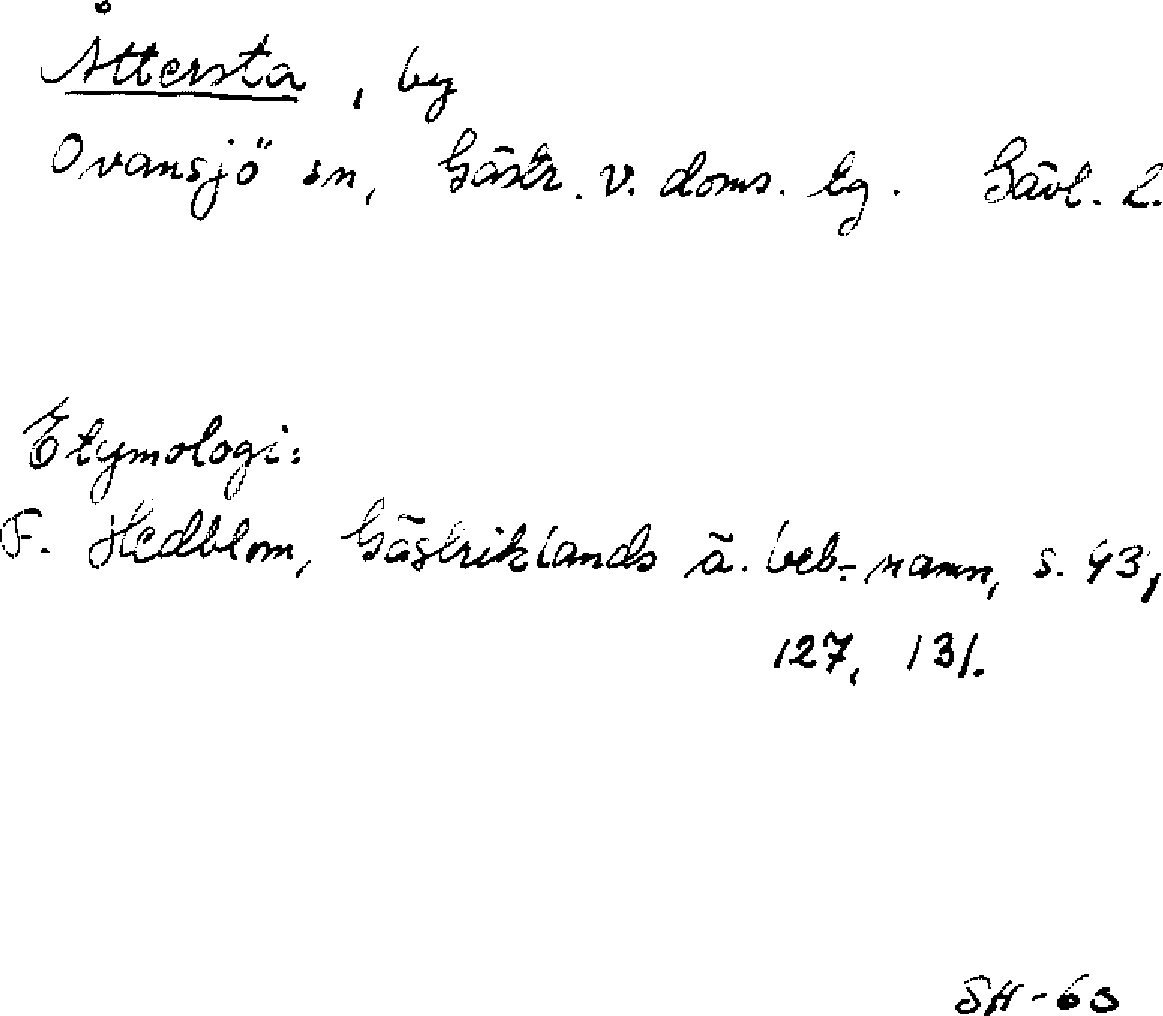 Åttersta, by
Ovansjö sn, Gästr. v. doms. tg. Gävl. l.
Etymologi:
F. Hedblom, Gästriklands ä. beb.-namn, s. 43,
127, 131.
SH-63